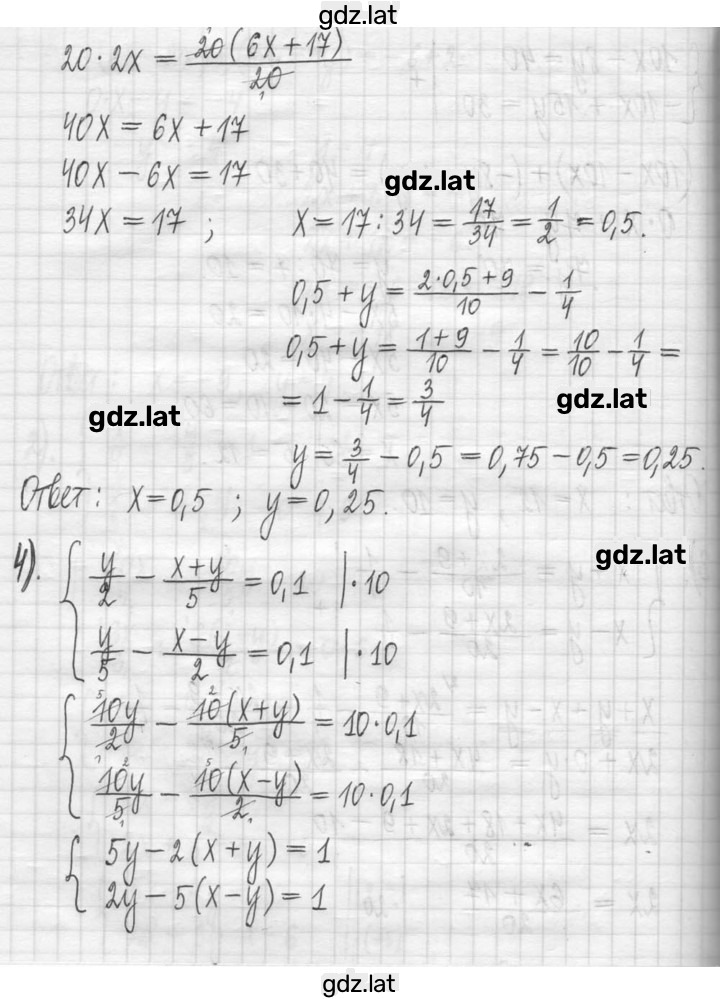 gdz.lat
20·2x = 20(6x+17)/20
40x = 6x+17
40x − 6x = 17
gdz.lat
34x = 17 ; x = 17:34 = 17/34 = 1/2 = 0,5.
0,5 + y = (2·0,5+9)/10 − 1/4
0,5 + y = (1+9)/10 − 1/4 = 10/10 − 1/4 =
= 1 − 1/4 = 3/4
gdz.lat
gdz.lat
y = 3/4 − 0,5 = 0,75 − 0,5 = 0,25.
Ответ: x = 0,5 ; y = 0,25.
4). { y/2 − (x+y)/5 = 0,1 |·10
gdz.lat
y/5 − (x−y)/2 = 0,1 |·10
{ 10y/2 − 10(x+y)/5 = 10·0,1
10y/5 − 10(x−y)/2 = 10·0,1
{ 5y − 2(x+y) = 1
2y − 5(x−y) = 1
gdz.lat